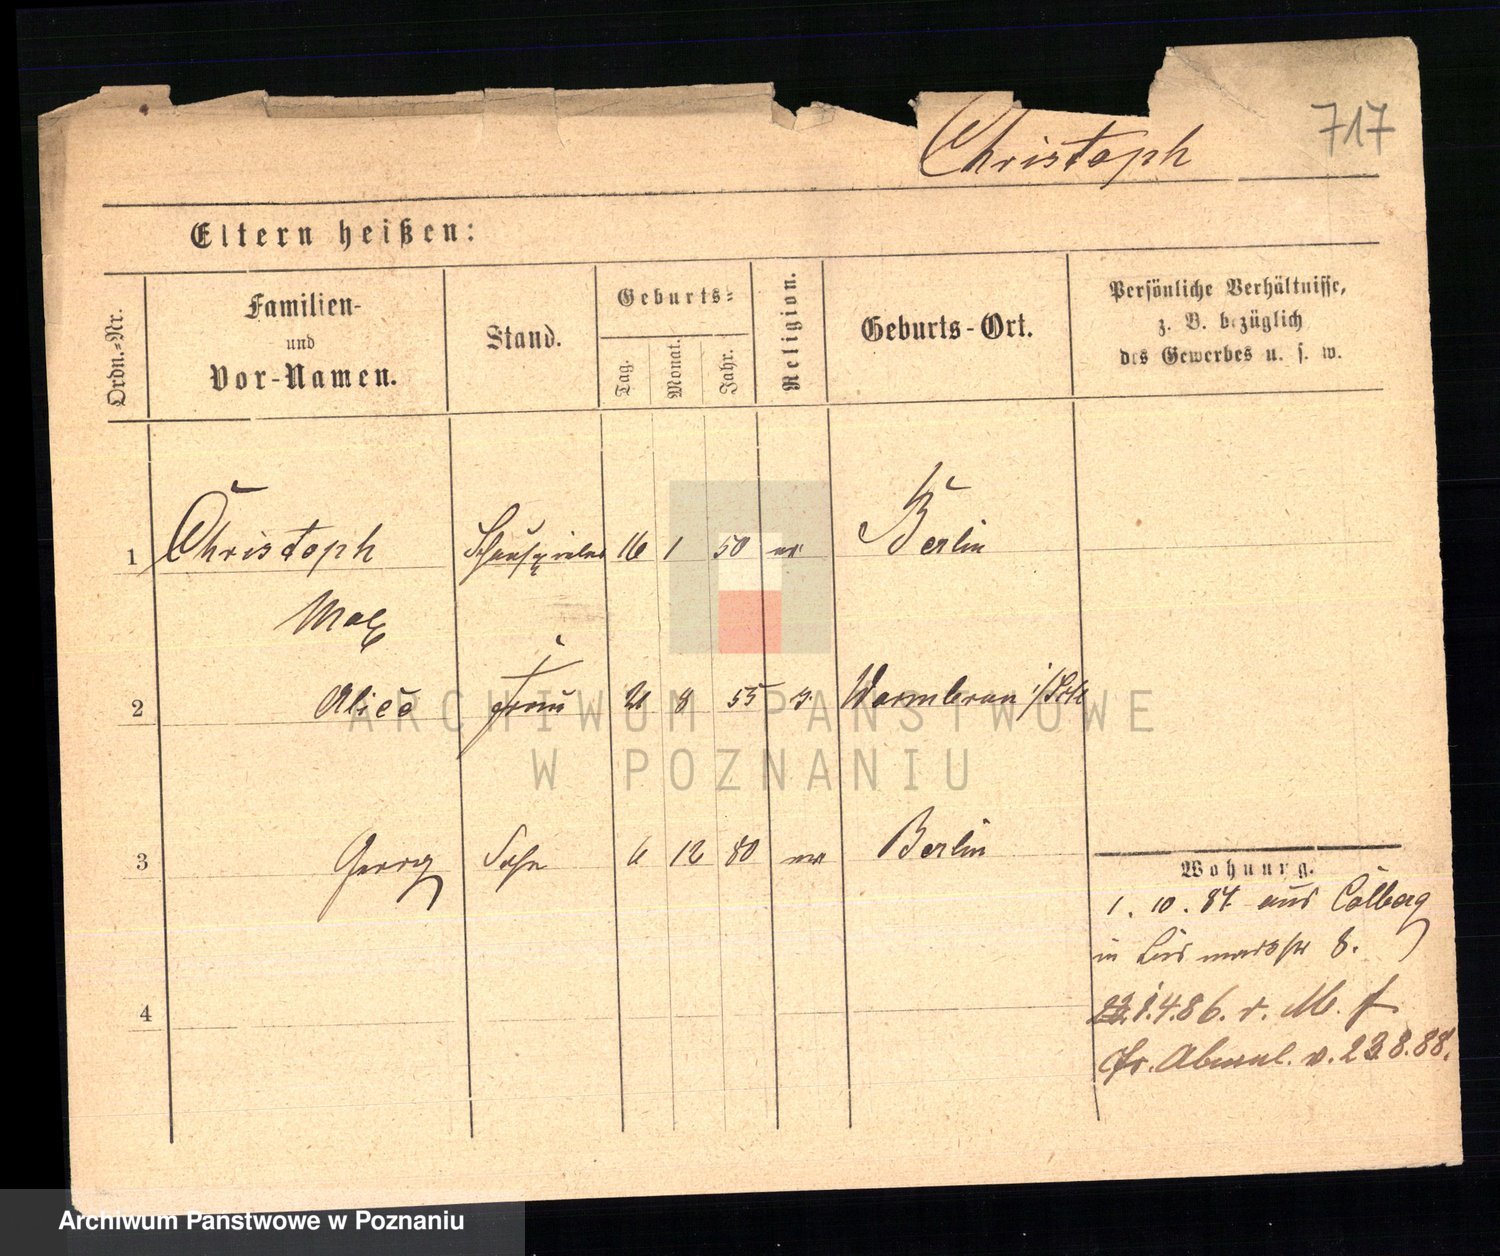 717
Christoph
Eltern heißen:
Ordn.-Nr.
Familien-
und
Vor-Namen.
Stand.
Geburts-
Tag.
Monat.
Jahr.
Religion.
Geburts-Ort.
Persönliche Verhältnisse,
z. B. bezüglich
des Gewerbes u. s. w.
1 Christoph Schauspieler 16 1 50 ev Berlin
Max
2 Alice Frau 21 8 55 Warmbrun i/Schl
3 Georg Sohn 6 12 80 ev Berlin
Wohnung.
1. 10. 84 aus Colberg
in Bismarckstr 8.
4
1.4.86. v. M.
v. 23.8.88.
ARCHIWUM PAŃSTWOWE
W POZNANIU
Archiwum Państwowe w Poznaniu